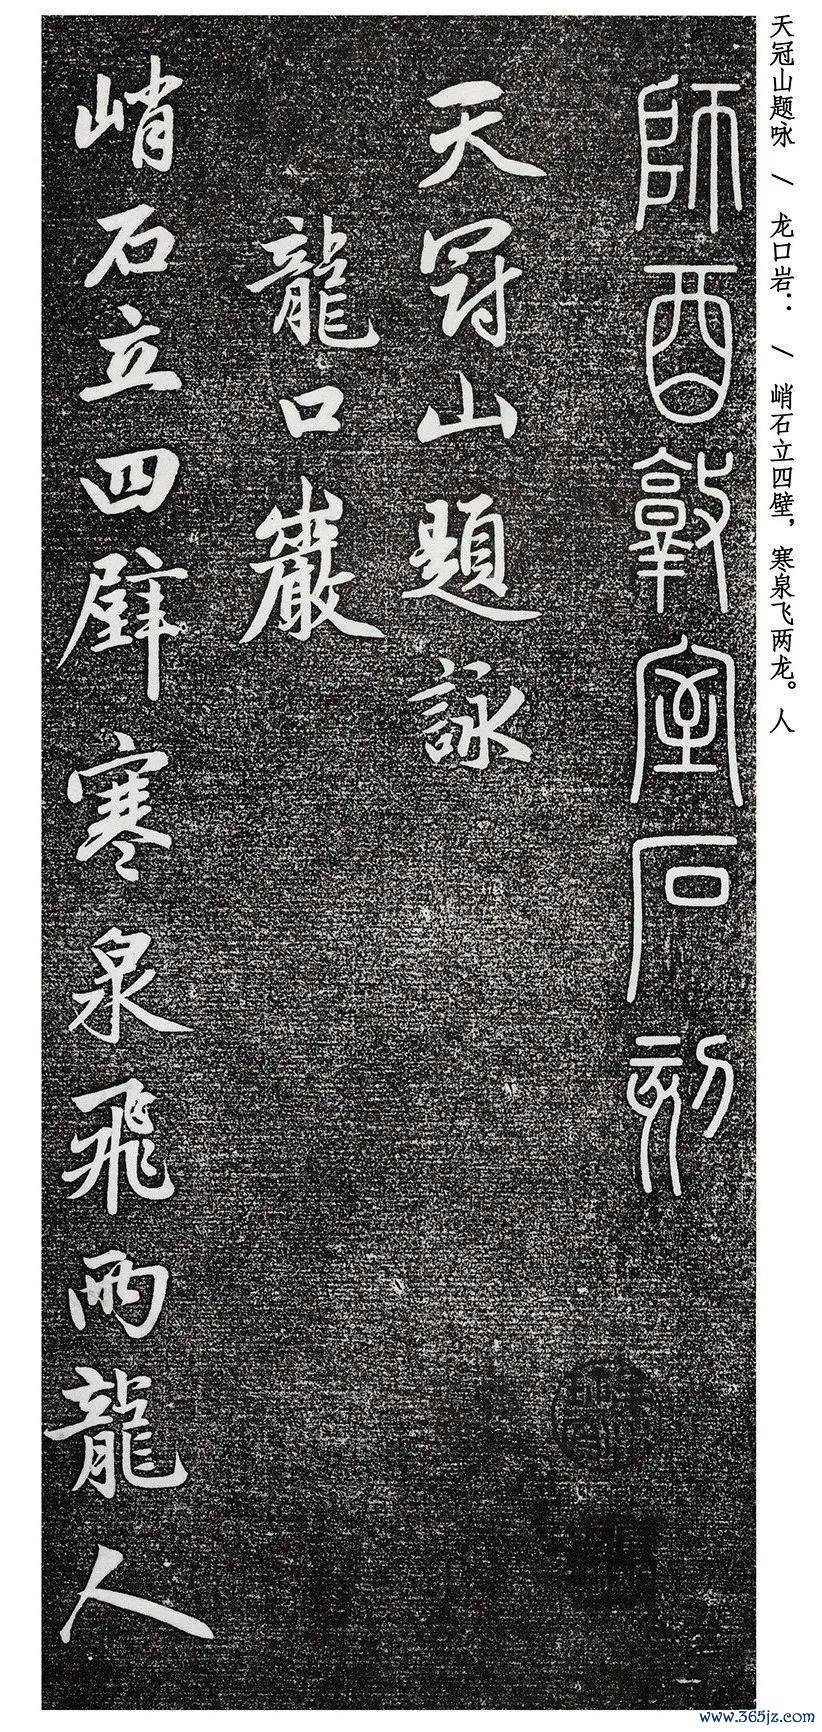 天冠山题咏 / 龙口岩： / 峭石立四壁，寒泉飞两龙。人
師酉敦室石刻
天冠山題詠
龍口巖
峭石立四壁寒泉飛兩龍人
www.365jz.com